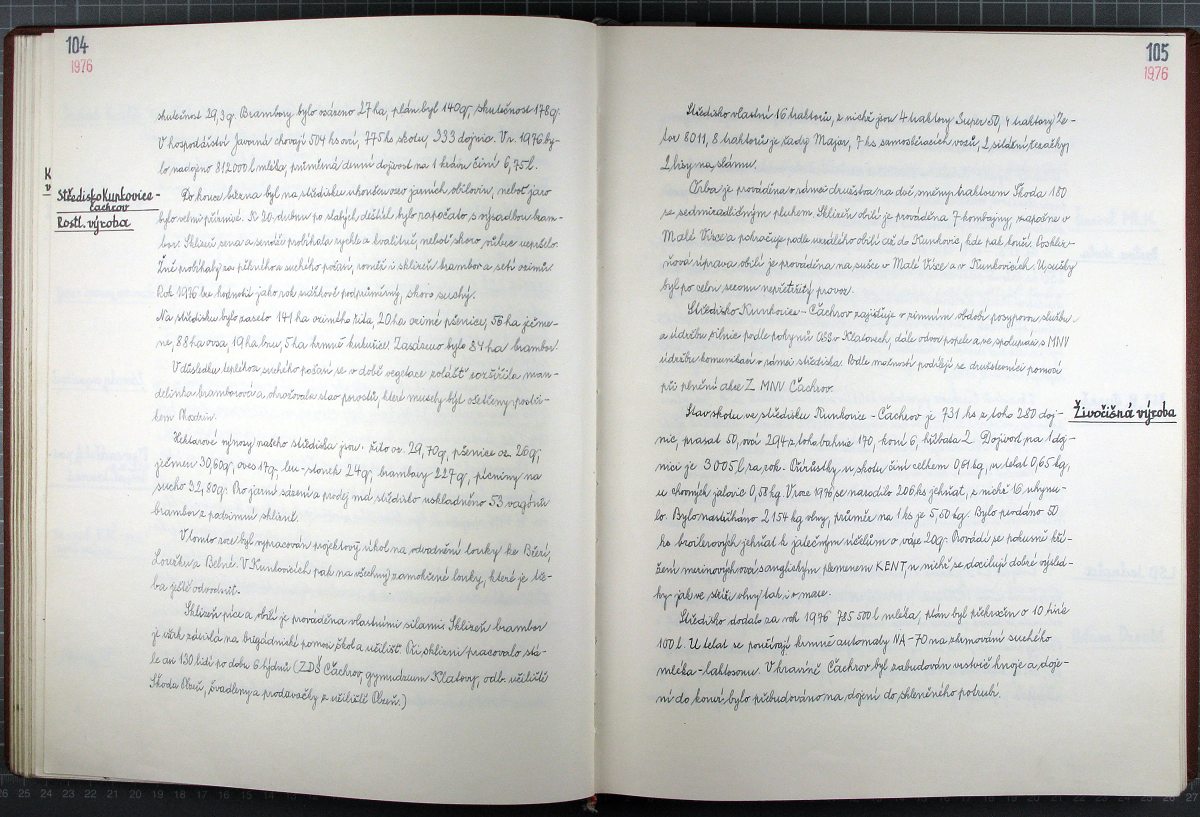 104
1976
skutečnost 29,3q. Brambory bylo osázeno 27 ha, plán byl 140q, skutečnost 178q.
V hospodářství Javorná chovají 504 ks ovcí, 775 ks skotu, 333 dojnic. V r. 1976 by-
lo nadojeno 812000 l mléka, průměrná denní dojivost na 1 kodin činí 6,75 l.
K
v
Středisko Kunkovice -
Čachrov
Rostl. výroba
Do konce března byl na středisku ukončen osev jarních obilovin, neboť jaro
bylo velmi příznivé. K 20. dubnu po slabých deštích bylo započato s výsadbou bram-
bor. Sklizeň sena a senáží probíhala rychle a kvalitně, neboť skoro vůbec nepršelo.
Žně probíhaly za několika suchého počasí, rovněž i sklizeň brambor a setí ozimů.
Rok 1976 lze hodnotit jako rok srážkově podprůměrný, skoro suchý.
Na středisku bylo zaseto 141 ha ozimého žita, 20 ha ozimé pšenice, 56 ha ječme-
ne, 88 ha ovsa, 19 ha lnu, 5 ha krmné kukuřice. Zasázeno bylo 84 ha brambor.
V důsledku teplého a suchého počasí se v době vegetace zvlášť rozšířila man-
delinka bramborová a ohrožovala stav porostů, které musely být ošetřeny postři-
kem
Hektarové výnosy našeho střediska jsou: žito oz. 29,70q, pšenice oz. 26q,
ječmen 30,60q, oves 17q, len-stonek 24q, brambory 227q, pícniny na
sucho 32,80q. Pro jarní sázení a prodej má středisko uskladněno 53 vagónů
brambor z podzimní sklizně.
V tomto roce byl vypracován projektový úkol na odvodnění louky ke Březí,
Loučku z Bělné. V Kunkovicích pak na všechny zamokřené louky, které je tře-
ba ještě odvodnit.
Sklizeň píce a obilí je prováděna vlastními silami. Sklizeň brambor
je však závislá na brigádnické pomoci škol a učilišť. Při sklizni pracovalo stá-
le asi 130 lidí po dobu 6 týdnů (ZDŠ Čachrov, gymnázium Klatovy, odb. učiliště
Škoda Plzeň, švadleny a prodavačky z učiliště Plzeň.)
105
1976
Středisko vlastní 16 traktorů, z nichž jsou 4 traktory Super 50, 4 traktory Ze-
tor 8011, 8 traktorů je řady Major, 7 ks samosběracích vozů, 2 silážní řezačky,
2 lisy na slámu.
Orba je prováděna v rámci družstva na dvě směny traktorem Škoda 180
se sedmiradličným pluhem. Sklizeň obilí je prováděna 7 kombajny, započne v
Malé Vísce a pokračuje podle uzrálého obilí až do Kunkovic, kde pak končí. Poskliz-
ňová úprava obilí je prováděna na sušce v Malé Vísce a v Kunkovicích. U sušky
byl po celou sezonu nepřetržitý provoz.
Středisko Kunkovice - Čachrov zajišťuje v zimním období posypovou službu
a údržbu silnic podle pokynů OSS v Klatovech, dále odvoz popela a ve spolupráci s MNV
údržbu komunikací v rámci střediska. Podle možností podílejí se družstevníci pomocí
při plnění akce Z MNV Čachrov.
Živočišná výroba
Stav skotu ve středisku Kunkovice - Čachrov je 731 ks z toho 280 doj-
nic, prasat 50, ovcí 294 z toho bahnic 170, koní 6, hříbata 2. Dojivost na 1 doj-
nici je 3005 l za rok. Přírůstky u skotu činí celkem 0,61 kg, u telat 0,65 kg,
u chovných jalovic 0,58 kg. V roce 1976 se narodilo 206 ks jehňat, z nichž 16 uhynu-
lo. Bylo nastříháno 2154 kg vlny, průměr na 1 ks je 5,60 kg. Bylo prodáno 50
ks broilerových jehňat k jatečným účelům o váze 20q. Provádí se pokusné kří-
žení merinových ovcí s anglickým plemenem KENT, u nichž se docilují dobré výsled-
ky jak ve střiži vlny, tak i v mase.
Středisko dodalo za rok 1976 785 500 l mléka, plán byl překročen o 10 tisíc
100 l. U telat se používají krmné automaty NA-70 na zkrmování suchého
mléka - laktosanu. V kravíně Čachrov byl zabudován vrstvič hnoje a doje-
ní do konví, bylo přebudováno na dojení do skleněného potrubí.